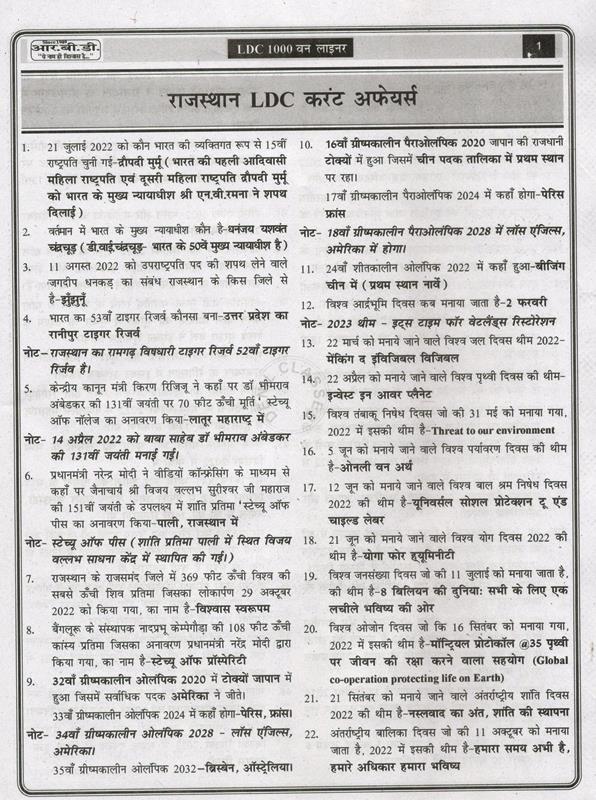 Since 1989
आर.बी.डी.
"ये नाम ही विश्वास है..."
LDC 1000 वन लाइनर
1
राजस्थान LDC करंट अफेयर्स
1. 21 जुलाई 2022 को कौन भारत की व्यक्तिगत रूप से 15वीं
राष्ट्रपति चुनी गई-द्रौपदी मुर्मू ( भारत की पहली आदिवासी
महिला राष्ट्रपति एवं दूसरी महिला राष्ट्रपति द्रौपदी मुर्मू
को भारत के मुख्य न्यायाधीश श्री एन.वी.रमना ने शपथ
दिलाई )
2. वर्तमान में भारत के मुख्य न्यायाधीश कौन है-धनंजय यशवंत
चंद्रचूड़ ( डी.वाई.चंद्रचूड़- भारत के 50वें मुख्य न्यायाधीश है )
3. 11 अगस्त 2022 को उपराष्ट्रपति पद की शपथ लेने वाले
जगदीप धनकड़ का संबंध राजस्थान के किस जिले से
है-झुंझुनूं
4. भारत का 53वाँ टाइगर रिजर्व कौनसा बना-उत्तर प्रदेश का
रानीपुर टाइगर रिजर्व
नोट-राजस्थान का रामगढ़ विषधारी टाइगर रिजर्व 52वाँ टाइगर
रिर्जव है।
5. केन्द्रीय कानून मंत्री किरण रिजिजू ने कहाँ पर डॉ भीमराव
अंबेडकर की 131वीं जयंती पर 70 फीट ऊँची मूर्ति ' स्टेच्यू
ऑफ नॉलेज का अनावरण किया-लातूर महाराष्ट्र में
नोट- 14 अप्रैल 2022 को बाबा साहेब डॉ भीमराव अंबेडकर
की 131वीं जयंती मनाई गई।
6. प्रधानमंत्री नरेन्द्र मोदी ने वीडियों कॉन्फ्रेसिंग के माध्यम से
कहाँ पर जैनाचार्य श्री विजय वल्लभ सुरीश्वर जी महाराज
की 151वीं जयंती के उपलक्ष्य में शांति प्रतिमा 'स्टेच्यू ऑफ
पीस का अनावरण किया-पाली, राजस्थान में
नोट- स्टेच्यू ऑफ पीस ( शांति प्रतिमा पाली में स्थित विजय
वल्लभ साधना केंद्र में स्थापित की गई। )
7. राजस्थान के राजसमंद जिले में 369 फीट ऊँची विश्व की
सबसे ऊँची शिव प्रतिमा जिसका लोकार्पण 29 अक्टूबर
2022 को किया गया, का नाम है-विश्वास स्वरूपम
8. बैंगलूरू के संस्थापक नादप्रभू केम्पेगौड़ा की 108 फीट ऊँची
कांस्य प्रतिमा जिसका अनावरण प्रधानमंत्री नरेंद्र मोदी द्वारा
किया गया, का नाम है-स्टेच्यू ऑफ प्रॉस्पेरिटी
9. 32वां ग्रीष्मकालीन ओलंपिक 2020 में टोक्यों जापान में
हुआ जिसमें सर्वाधिक पदक अमेरिका ने जीते।
33वां ग्रीष्मकालीन ओलंपिक 2024 में कहाँ होगा-पेरिस, फ्रांस।
नोट- 34वाँ ग्रीष्मकालीन ओलंपिक 2028 - लॉस एंजिल्स,
अमेरिका।
35वां ग्रीष्मकालीन ओलंपिक 2032-ब्रिस्बेन, ऑस्ट्रेलिया।
10. 16वाँ ग्रीष्मकालीन पैराओलंपिक 2020 जापान की राजधानी
टोक्यों में हुआ जिसमें चीन पदक तालिका में प्रथम स्थान
पर रहा।
17वाँ ग्रीष्मकालीन पैराओलंपिक 2024 में कहाँ होगा-पेरिस
फ्रांस
नोट- 18वाँ ग्रीष्मकालीन पैराओलंपिक 2028 में लॉस एंजिल्स,
अमेरिका में होगा।
11. 24वाँ शीतकालीन ओलंपिक 2022 में कहाँ हुआ-बीजिंग
चीन में ( प्रथम स्थान नार्वे )
12. विश्व आर्द्रभूमि दिवस कब मनाया जाता है-2 फरवरी
नोट- 2023 थीम - इट्स टाइम फॉर वेटलैंड्स रिस्टोरेशन
13. 22 मार्च को मनाये जाने वाले विश्व जल दिवस थीम 2022-
मेकिंग द इंविजिबल विजिबल
14. 22 अप्रैल को मनाये जाने वाले विश्व पृथ्वी दिवस की थीम-
इन्वेस्ट इन आवर प्लैनेट
15. विश्व तंबाकू निषेध दिवस जो की 31 मई को मनाया गया,
2022 में इसकी थीम है-Threat to our environment
16. 5 जून को मनाये जाने वाले विश्व पर्यावरण दिवस की थीम
है-ओनली वन अर्थ
17. 12 जून को मनाये जाने वाले विश्व बाल श्रम निषेध दिवस
2022 की थीम है-यूनिवर्सल सोशल प्रोटेक्शन टू एंड
चाइल्ड लेबर
18. 21 जून को मनाये जाने वाले विश्व योग दिवस 2022 की
थीम है-योगा फोर ह्यूमिनीटी
19. विश्व जनसंख्या दिवस जो की 11 जुलाई को मनाया जाता है,
की थीम है-8 बिलियन की दुनियाः सभी के लिए एक
लचीले भविष्य की ओर
20. विश्व ओजोन दिवस जो कि 16 सितंबर को मनाया गया,
2022 में इसकी थीम है-मॉन्ट्रियल प्रोटोकॉल @35 पृथ्वी
पर जीवन की रक्षा करने वाला सहयोग (Global
co-operation protecting life on Earth)
21. 21 सितंबर को मनाये जाने वाले अंतर्राष्ट्रीय शांति दिवस
2022 की थीम है-नस्लवाद का अंत, शांति की स्थापना
22. अंतर्राष्ट्रीय बालिका दिवस जो की 11 अक्टूबर को मनाया
जाता है, 2022 में इसकी थीम है-हमारा समय अभी है,
हमारे अधिकार हमारा भविष्य